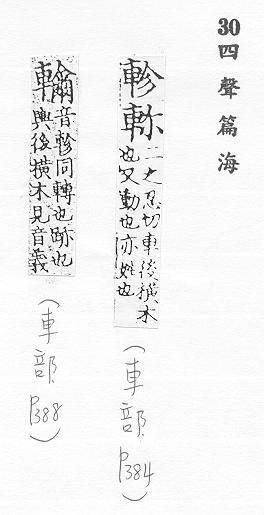 30 四聲篇海
軫 二之忍切車後橫木
也又動也亦姓也
(車部 P384)
音軫同轉也跡也
輿後橫木見音義
(車部 P388)